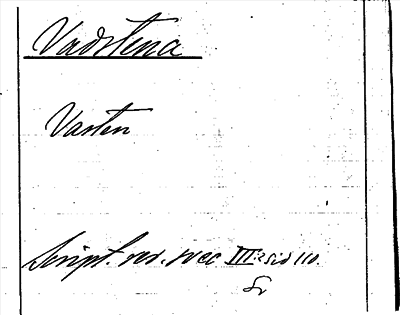 Vadstena
Vasten
Script. rer. svec III:2 sid 110.
Sv